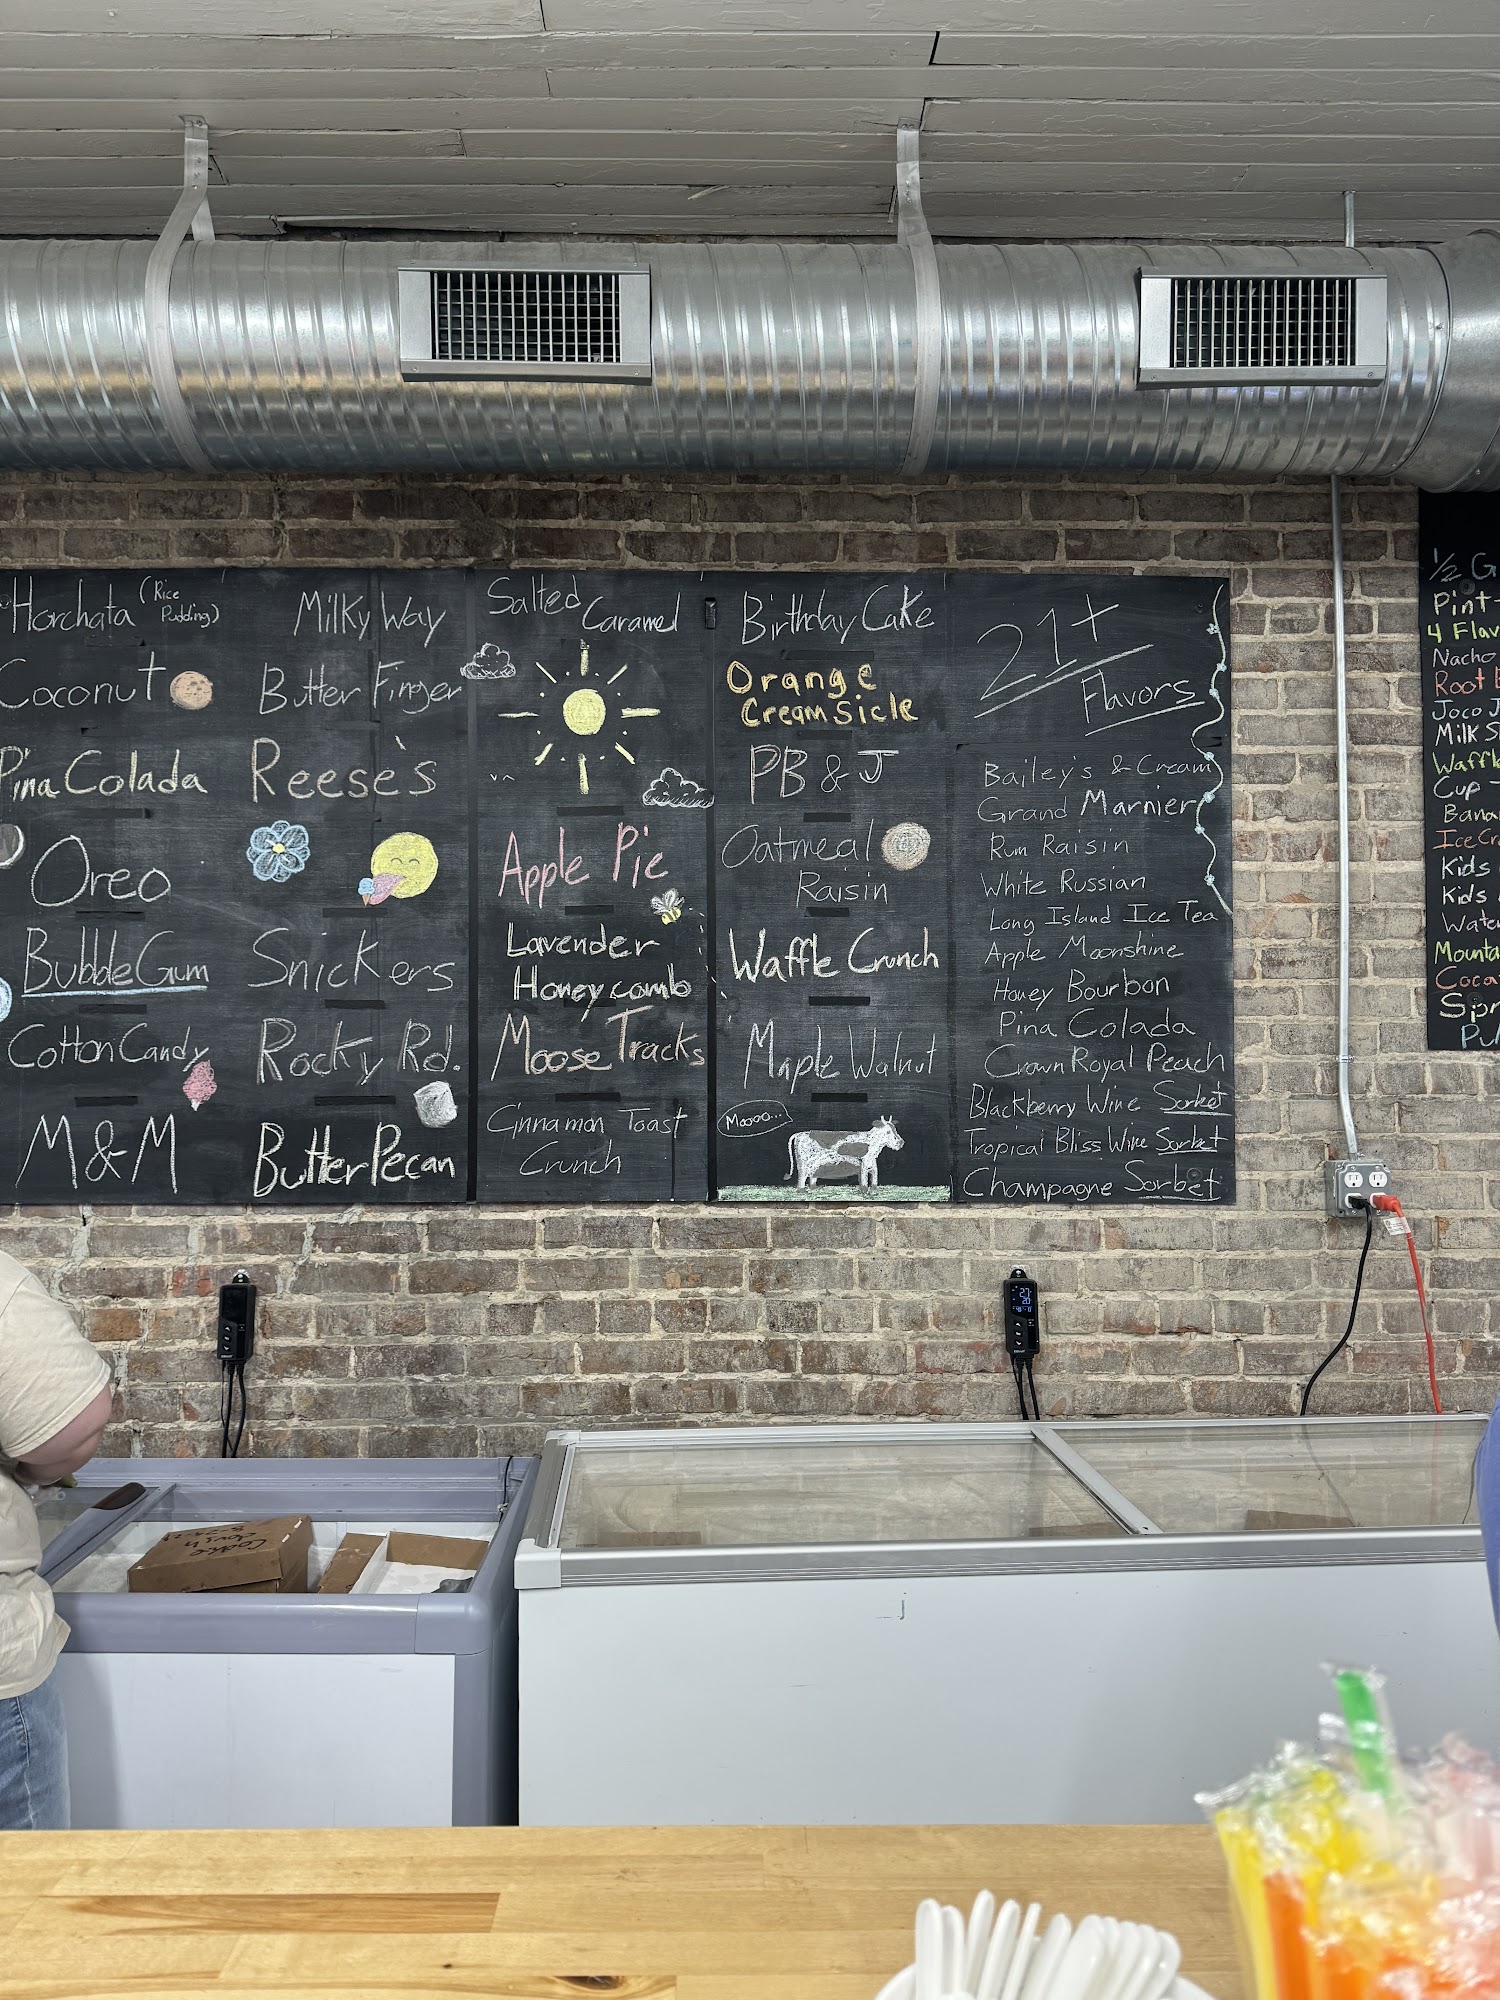 Horchata (Rice
Pudding)
Coconut
Pina Colada
Oreo
Bubble Gum
Cotton Candy
M&M
Milky Way
Butter Finger
Reese's
Snickers
Rocky Rd.
Butter Pecan
Salted
Caramel
Apple Pie
Lavender
Honeycomb
Moose Tracks
Cinnamon Toast
Crunch
Birthday Cake
Orange
Creamsicle
PB & J
Oatmeal
Raisin
Waffle Crunch
Maple Walnut
Moooo...
21+
Flavors
Bailey's & Cream
Grand Marnier
Rum Raisin
White Russian
Long Island Ice Tea
Apple Moonshine
Honey Bourbon
Pina Colada
Crown Royal Peach
Blackberry Wine Sorbet
Tropical Bliss Wine Sorbet
Champagne Sorbet
1/2 G
Pint
4 Flav
Nacho
Root
Joco J
Milk S
Waffle
Cup
Bana
Ice Cr
Kids
Kids
Wate
Mounta
Coca
Spr
Cookie
Dough